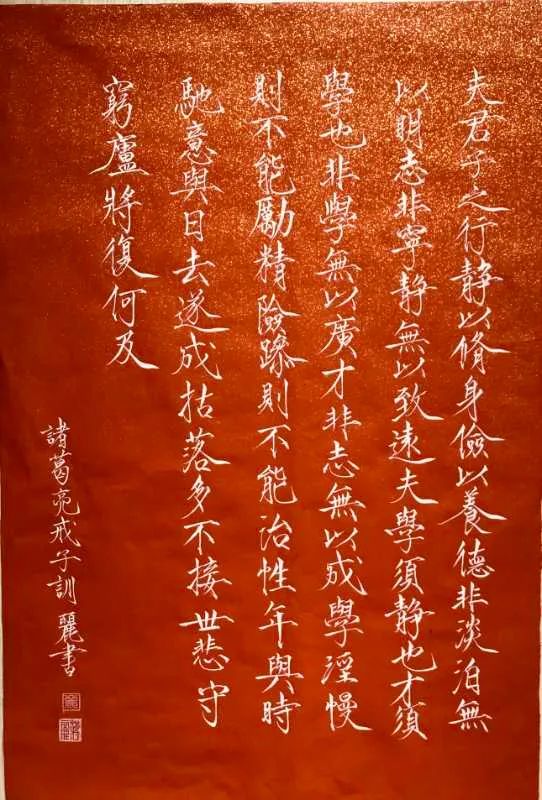 夫君子之行静以脩身儉以養德非淡泊無
以明志非寧静無以致遠夫學須静也才須
學也非學無以廣才非志無以成學淫慢
則不能勵精險躁則不能治性年與時
馳意與日去遂成枯落多不接世悲守
窮廬將復何及
諸葛亮戒子訓 麗書